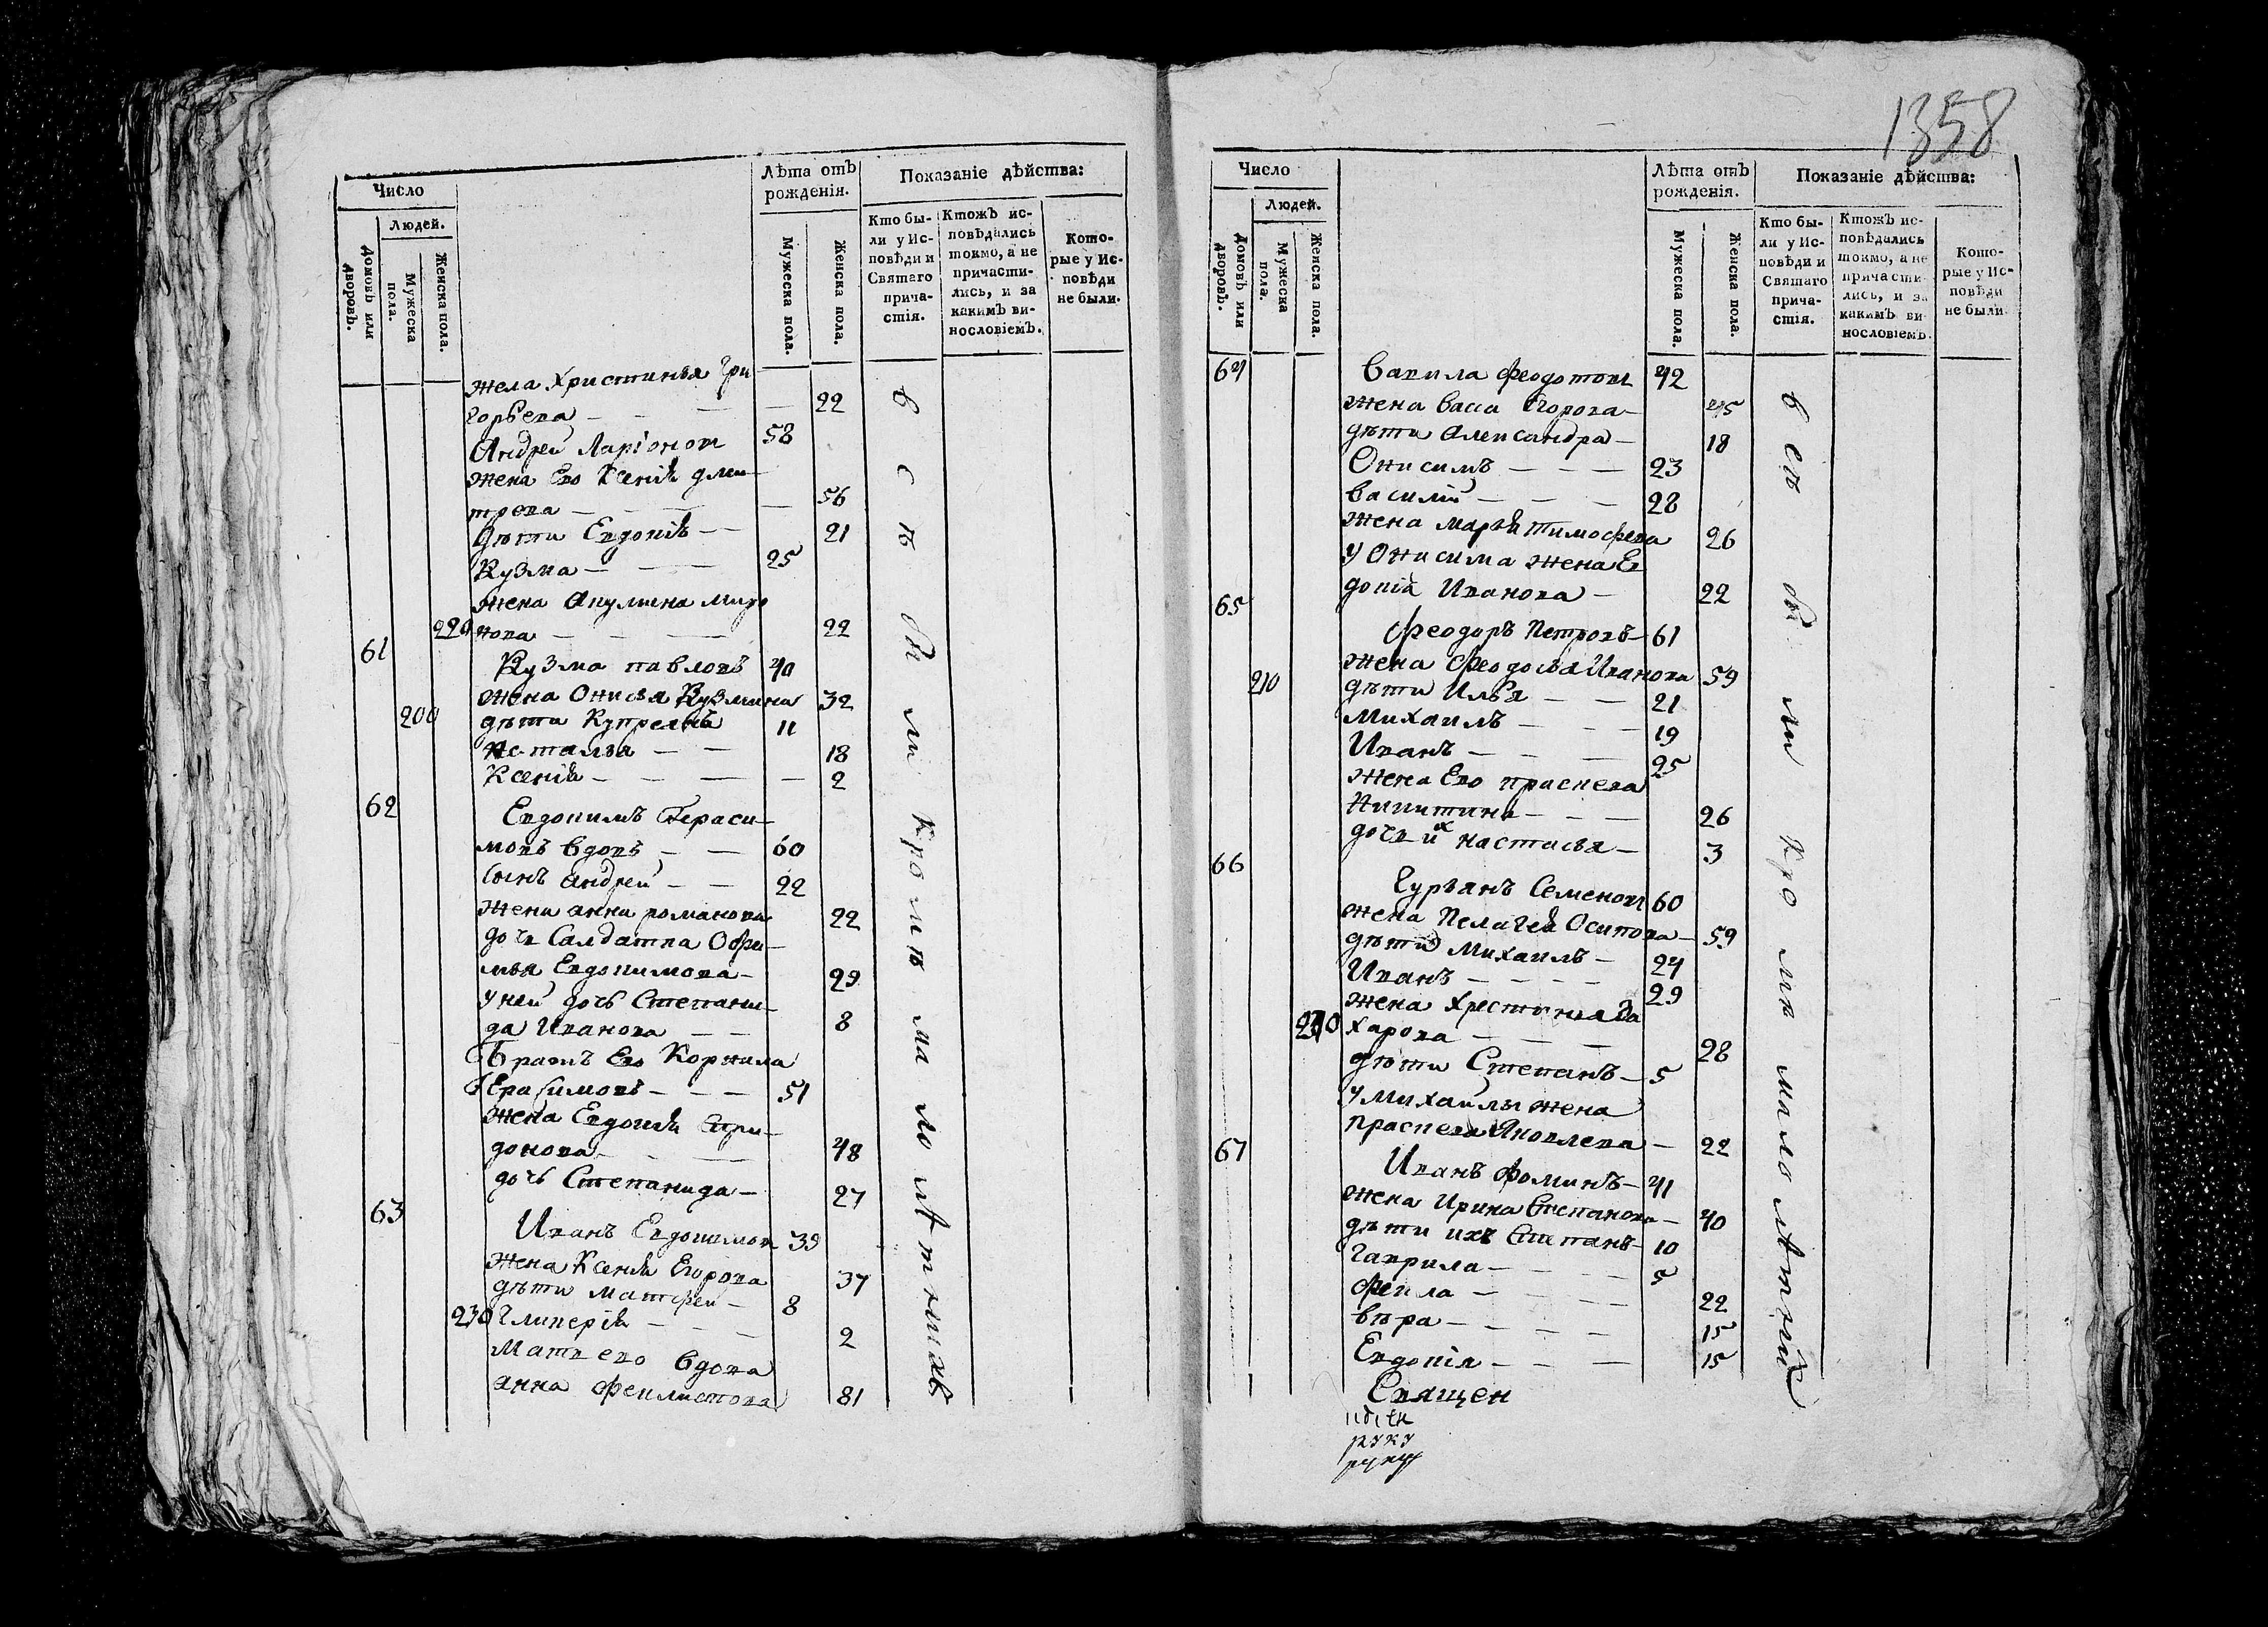 1358
Число
Людей.
Домовъ или дворовъ.
Мужеска пола.
Женска пола.
Лѣта отъ рожденія.
Мужеска пола.
Женска пола.
Показаніе дѣйства:
Кто были у Исповѣди и Святаго причастія.
Ктожъ исповѣдались токмо, а не причастились, и за какимъ винословіемъ.
Которые у Исповѣди не были.
жена Христинья Гри
горьева 22
Андрей Ларіоновъ 58
жена Его Ксенія дми
трева 56
дѣти Евдокія 21
Кузма 25
жена Акулина миро
220 нова 22
61 Кузма павловъ 40
жена Онисья Кузмина 32
200 дѣти Купреянъ 11
Наталья 18
Ксенія 2
62 Евдокимъ Гераси
мовъ вдовъ 60
сынъ андрей 22
жена анна романова 22
дочь Салдатка Офи
мья Евдокимова 29
у ней дочь Степани
да Иванова 8
Братъ Его Корнила
Герасимовъ 51
жена Евдокія Спри
донова 48
дочь Степанида 27
63 Иванъ Евдокимовъ 39
жена Ксенія Егорова 37
дѣти матфей 8
230 Гликерія 2
Мать его вдова
анна феклистова 81
всѣ были кромѣ малолѣтнихъ
Число
Людей.
Домовъ или дворовъ.
Мужеска пола.
Женска пола.
Лѣта отъ рожденія.
Мужеска пола.
Женска пола.
Показаніе дѣйства:
Кто были у Исповѣди и Святаго причастія.
Ктожъ исповѣдались токмо, а не причастились, и за какимъ винословіемъ.
Которые у Исповѣди не были.
64 Вавила Феодотовъ 42
жена васса Егорова 45
дѣти Александра 18
Онисимъ 23
Василій 28
жена марья тимофева 26
у Онисима жена Ев
докія Иванова 22
65 Феодоръ Петровъ 61
жена Феодосья Иванова 59
210 дѣти Илья 21
Михаилъ 19
Иванъ 25
жена Его праскева
Никитина 26
дочь их настасья 3
66 Гурьянъ Семеновъ 60
жена Пелагея Осипова 59
дѣти Михаилъ 24
Иванъ 29
жена Хрестинья За
240 харова 28
дѣти Степанъ 5
у михайлы жена
праскева Яковлева 22
67 Иванъ Фоминъ 41
жена Ирина Степанова 40
дѣти ихъ Степанъ 10
Гаврила 5
Фекла 22
вѣра 15
Евдокія 15
всѣ были кромѣ малолѣтній
Священ
руку
руку